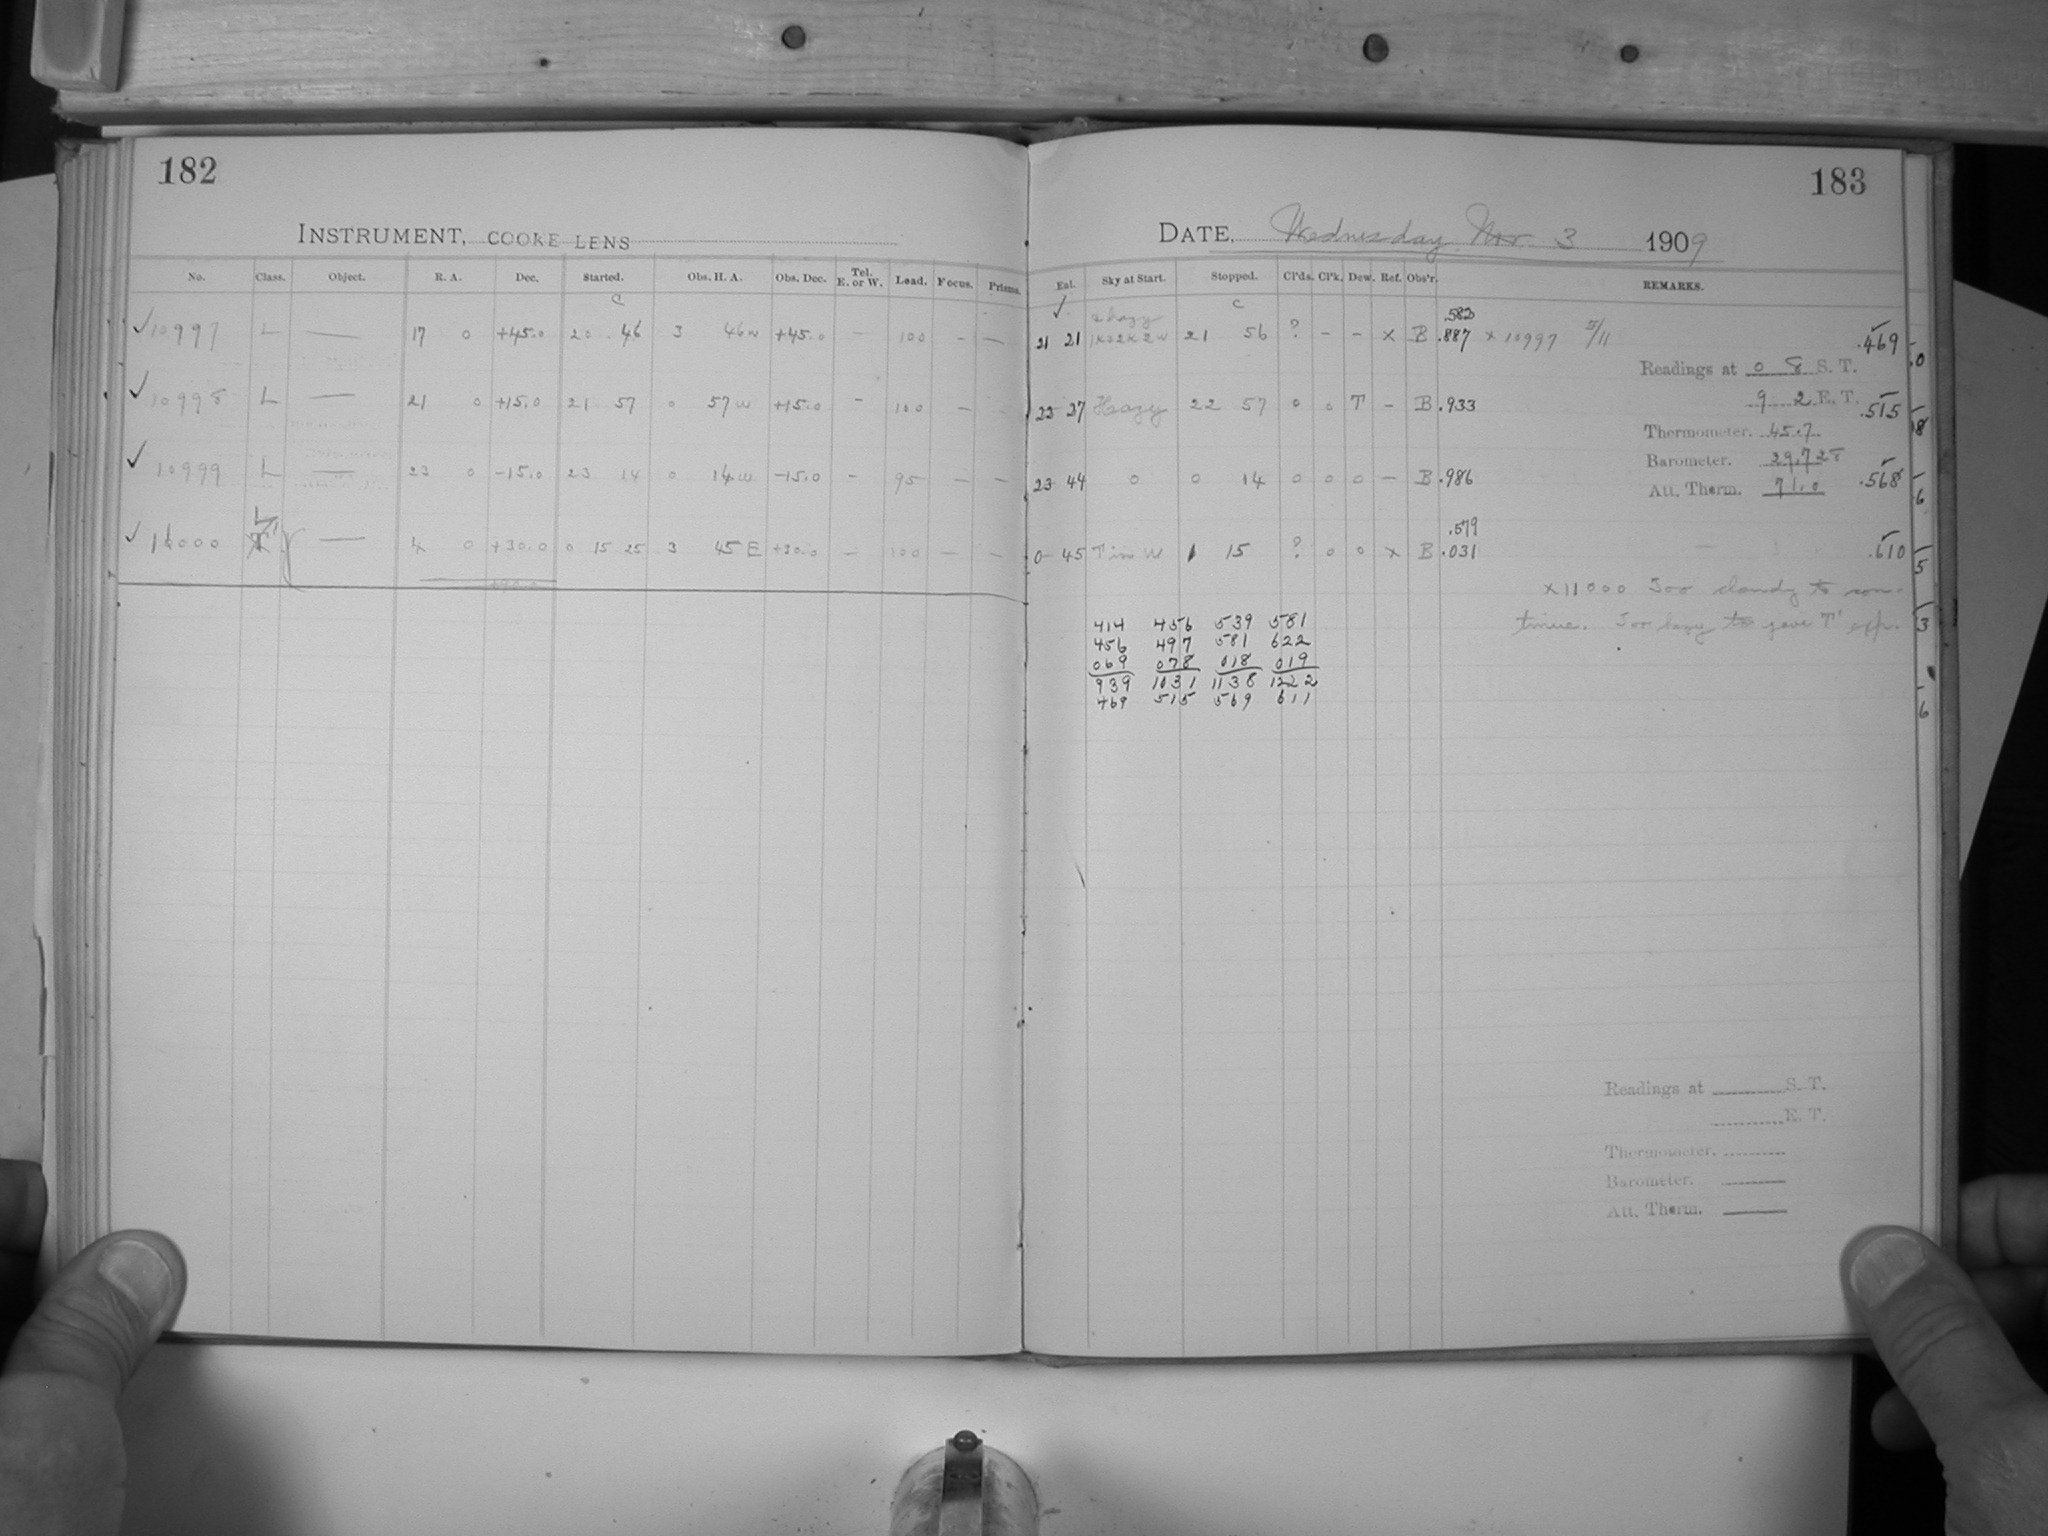 182
INSTRUMENT, COOKE LENS
No. Class. Object. R. A. Dec. Started. Obs. H. A. Obs. Dec. Tel. E. or W. Load. Focus. Prisms.
C
✓ 10997 L — 17 0 +45.0 20 46 3 46 W +45.0 — 100 — —
✓ 10998 L — 21 0 +15.0 21 57 0 57 W +15.0 — 100 — —
✓ 10999 L — 23 0 −15.0 23 14 0 14 W −15.0 — 95 — —
L
✓ 11000 T' — 4 0 +30.0 0 15 25 3 45 E +30.0 — 100 — —
183
DATE, Wednesday Nov. 3 1909
Eal. Sky at Start. Stopped. Cl'ds. Cl'k. Dew. Ref. Obs'r. REMARKS.
✓ C
hazy .582
21 21 21 56 ? – – x B .887 x 10997 .469
Readings at 0 8 S. T.
22 27 Hazy 22 57 0 0 T – B .933 9 2 E. T. .515
Thermometer. 45.7
Barometer. 29.728
23 44 0 0 14 0 0 0 – B .986 Att. Therm. 71.0 .568
.579
0 45 T in W 1 15 ? 0 0 x B .031 .610
x 11000 Too cloudy to con-
tinue. Too hazy to give T'
414 456 539 581
456 497 581 622
069 078 018 019
939 1031 1138 1222
469 515 569 611
Readings at S. T.
E. T.
Thermometer.
Barometer.
Att. Therm.